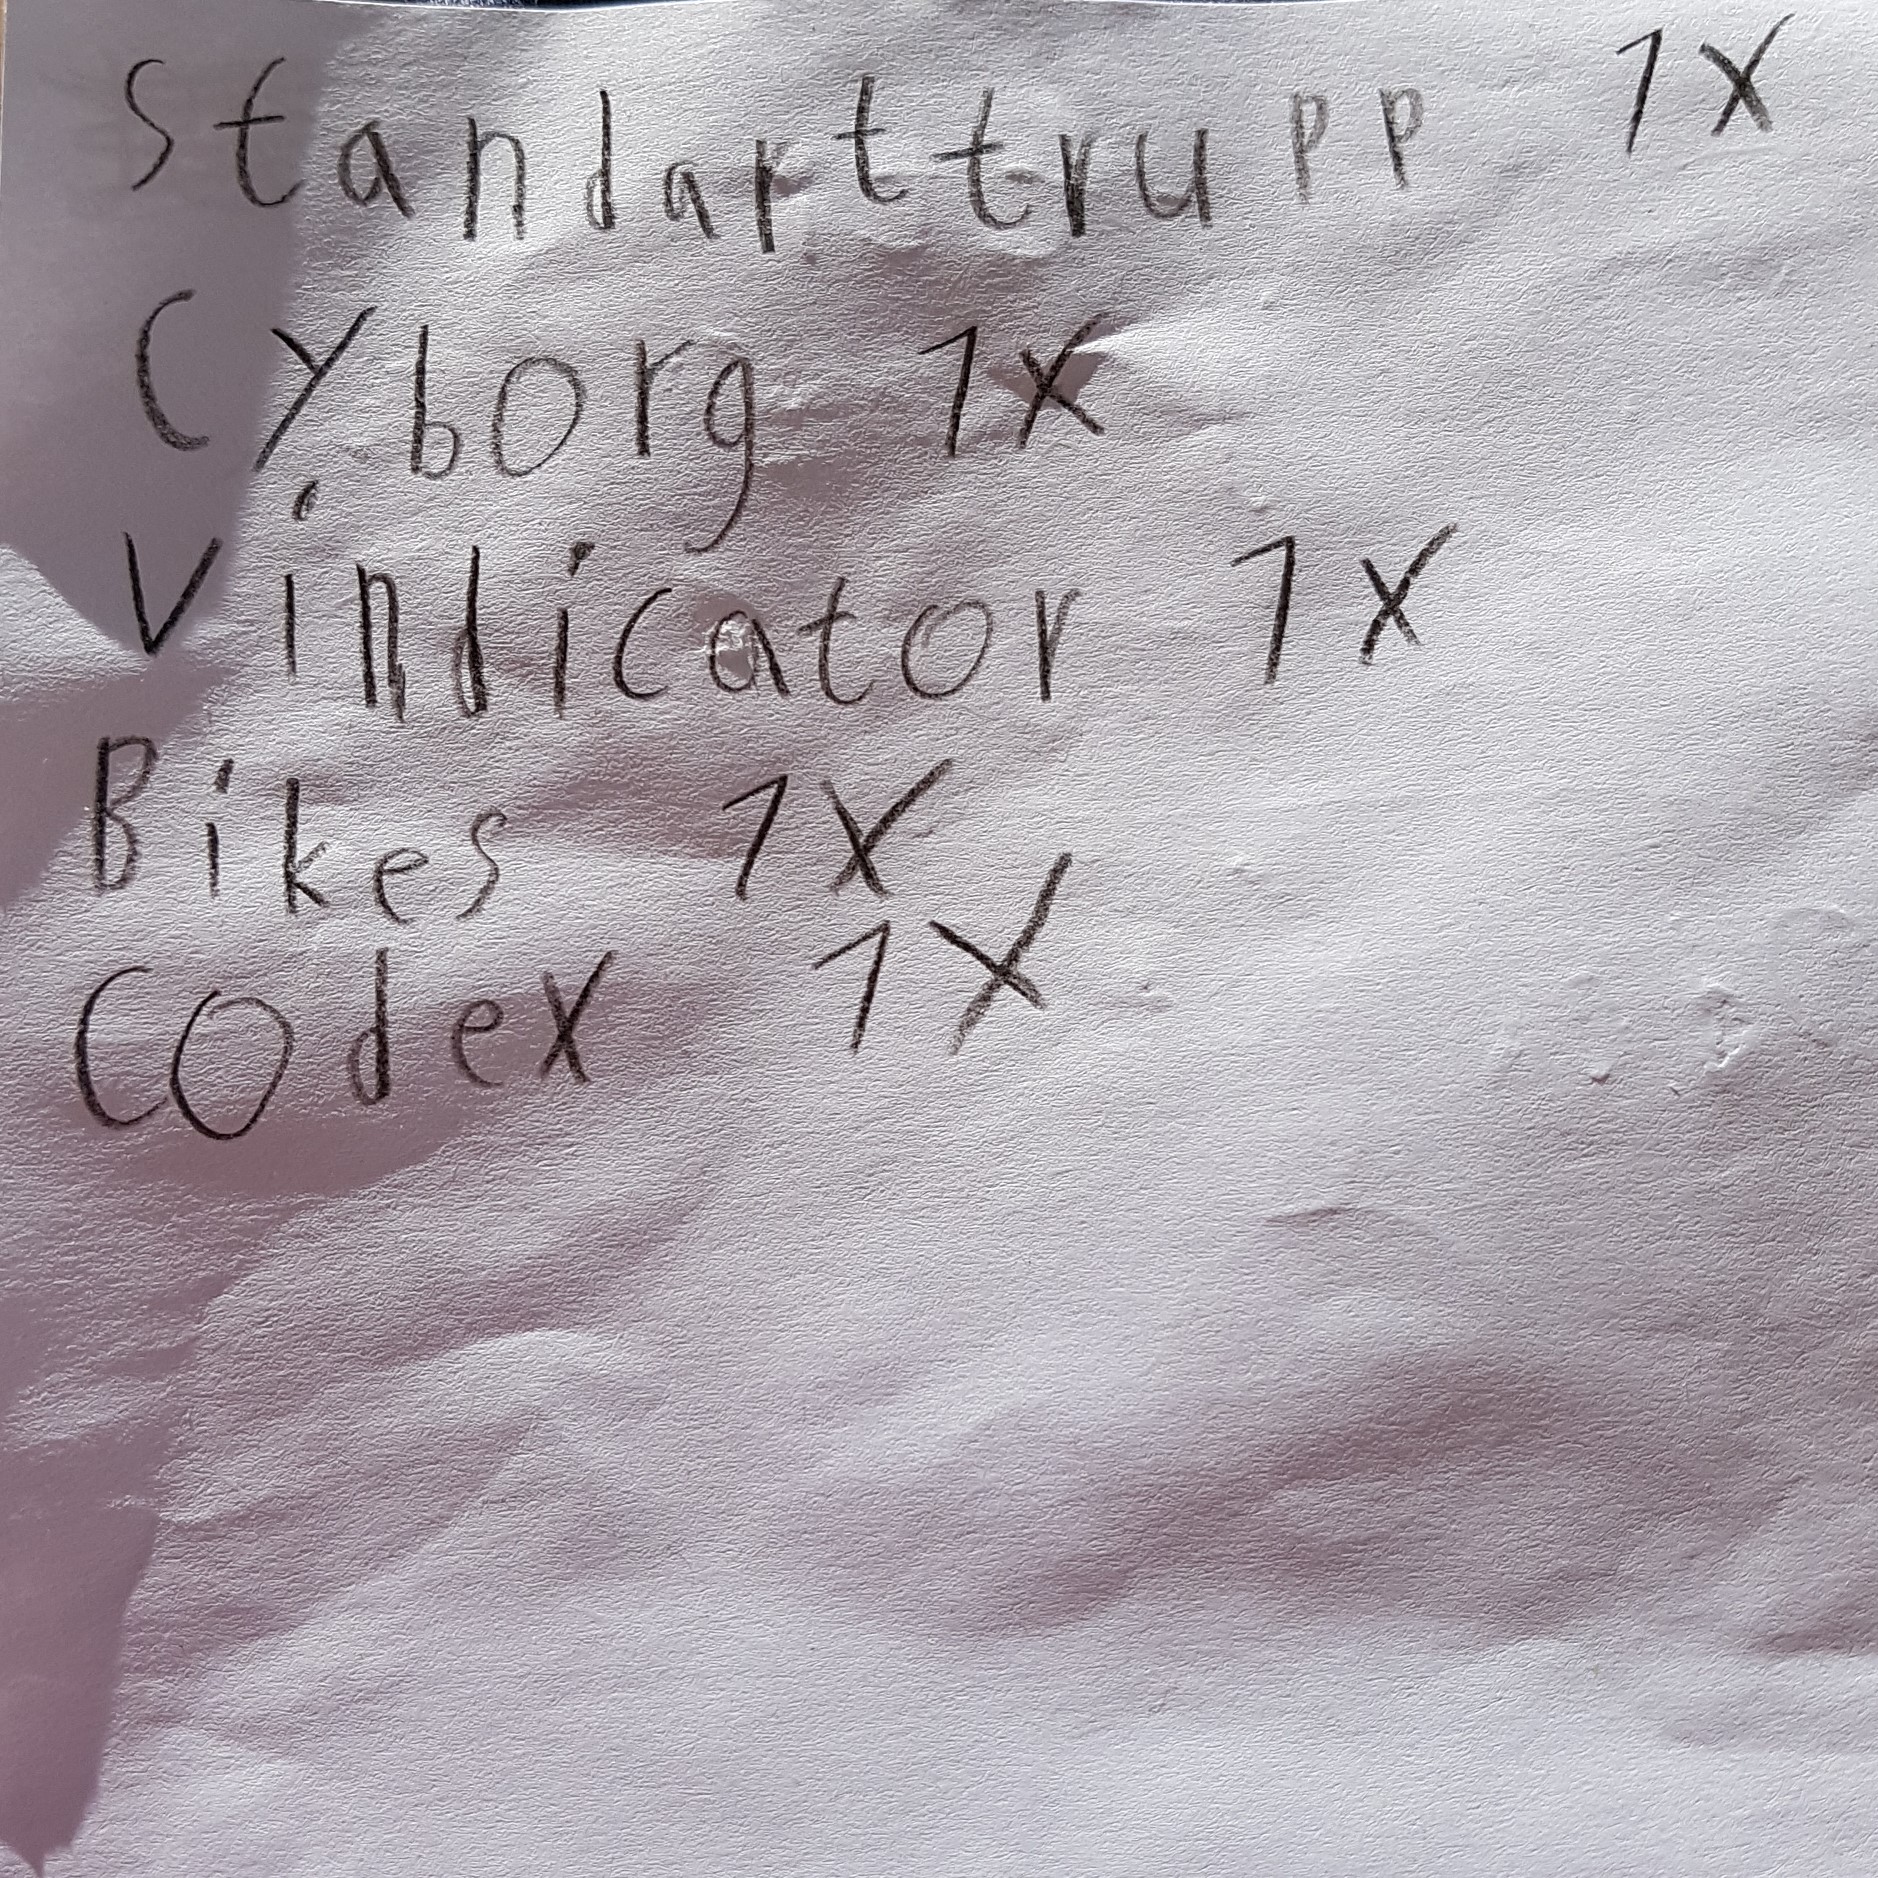 Standarttrupp 1x
Cyborg 1x
Vindicator 1x
Bikes 1x
Codex 1x